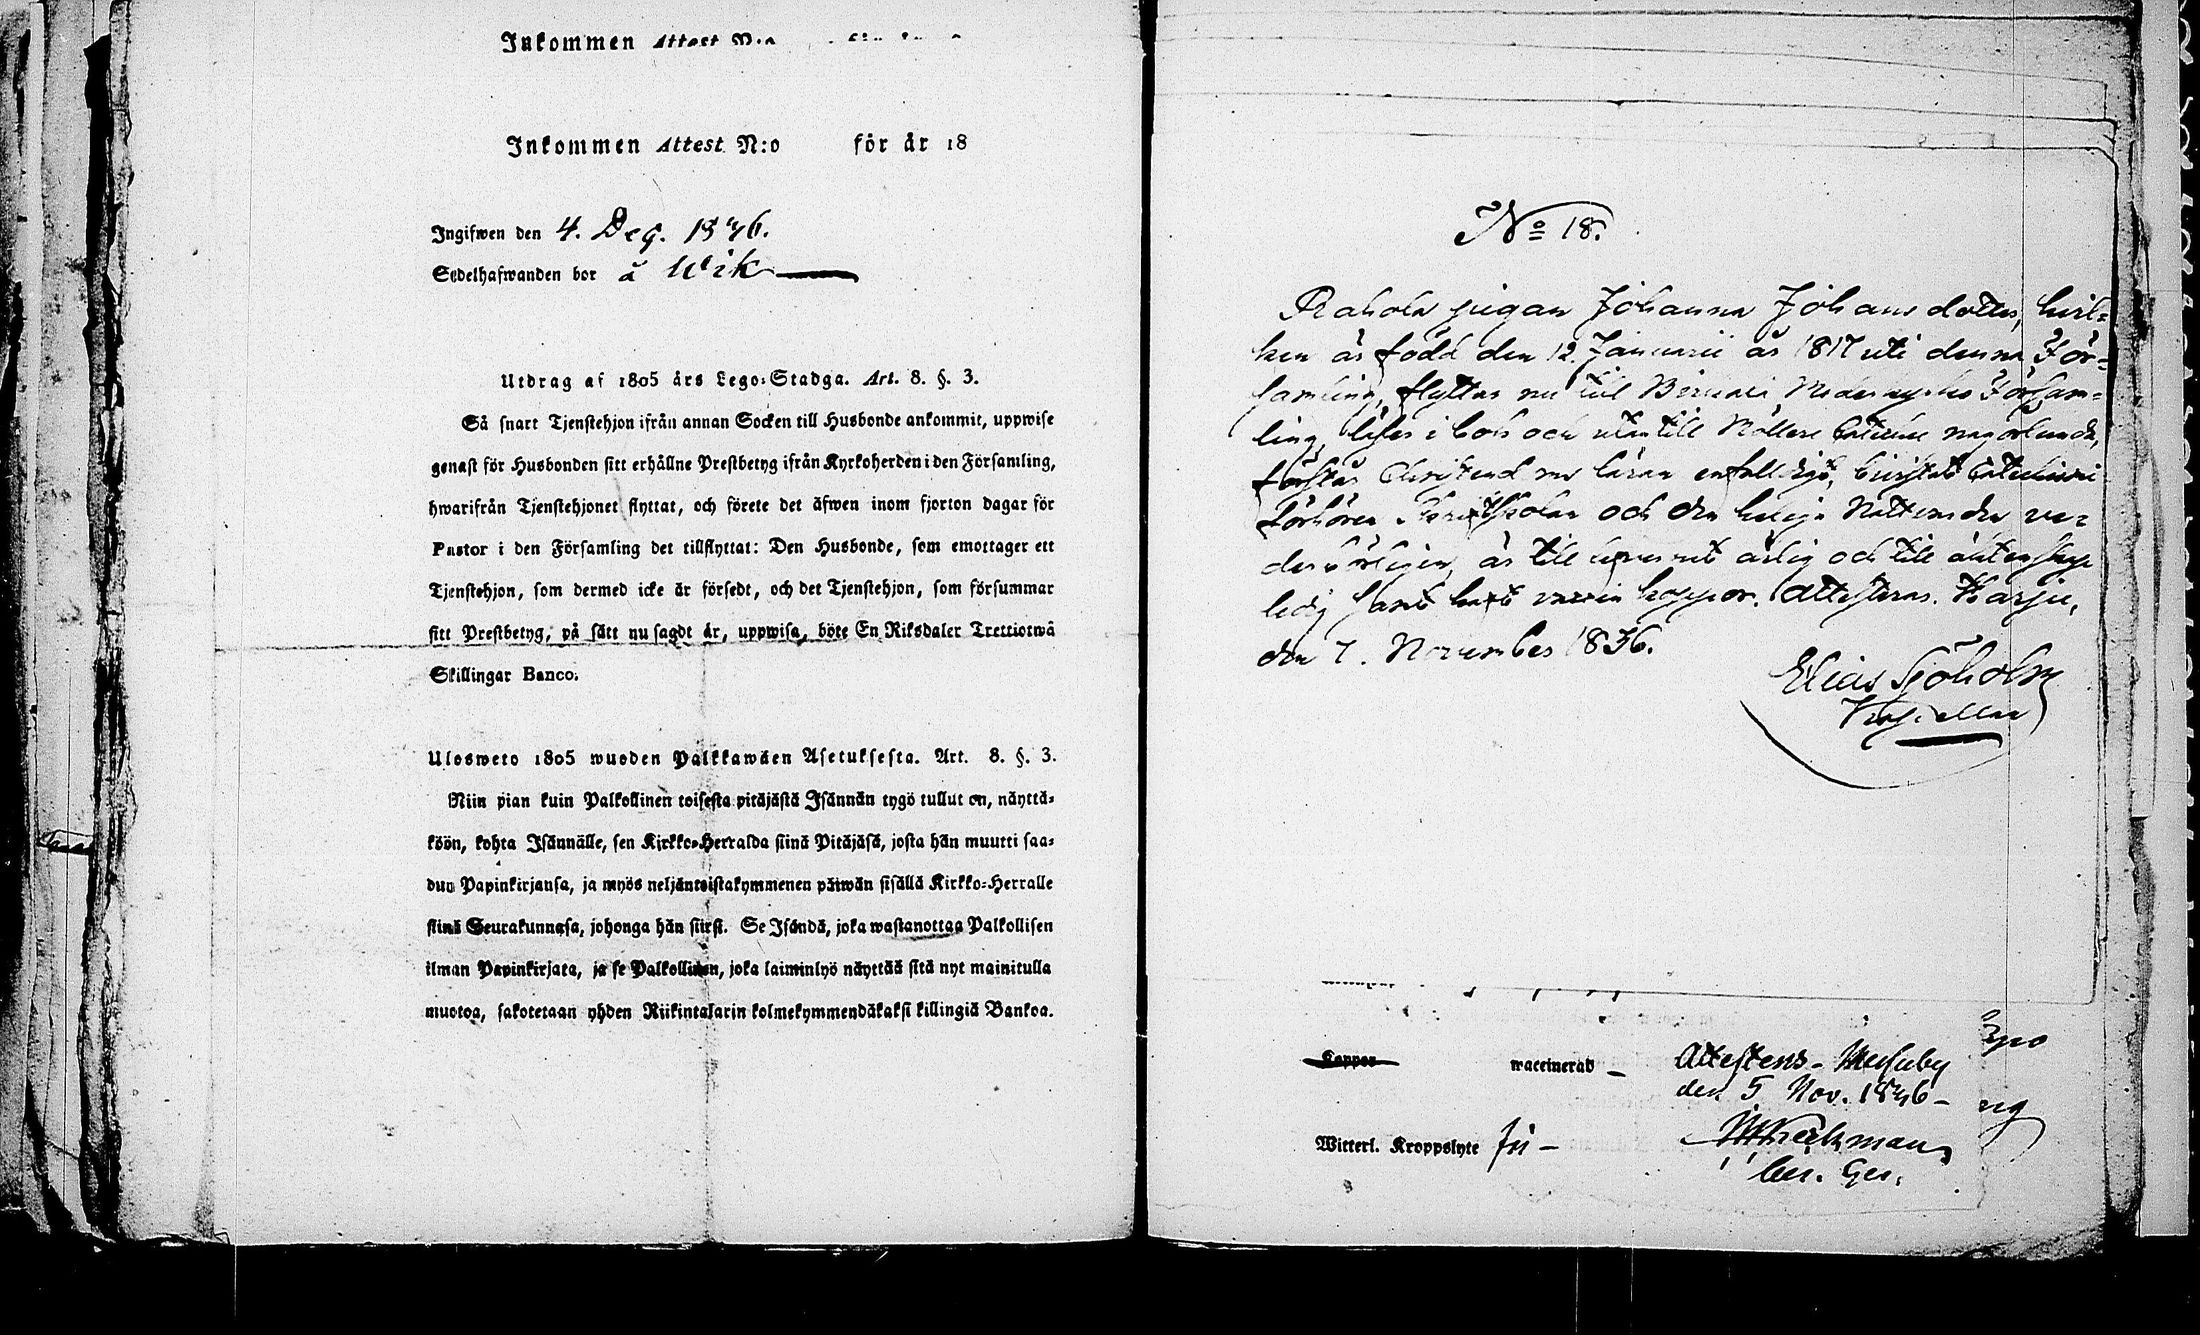 Inkommen Attest N:o
Inkommen Attest N:o för år 18
Ingifwen den 4. Dec. 1836.
Sedelhafwanden bor å Wik
Utdrag af 1805 års Lego-Stadga. Art. 8. §. 3.
Så snart Tjenstehjon ifrån annan Socken till Husbonde ankommit, uppwise
genast för Husbonden sitt erhållne Prestbetyg ifrån Kyrkoherden i den Församling,
hwarifrån Tjenstehjonet flyttat, och förete det äfwen inom fjorton dagar för
Pastor i den Församling det tillflyttat: Den Husbonde, som emottager ett
Tjenstehjon, som dermed icke är försedt, och det Tjenstehjon, som försummar
sitt Prestbetyg, på sätt nu sagdt är, uppwisa, böte En Riksdaler Trettiotwå
Skillingar Banco.
Ulosweto 1805 wuoden Palkkawäen Asetuksesta. Art. 8. §. 3.
Niin pian kuin Palkollinen toisesta pitäjästä Isännän tygö tullut on, näyttä-
köön, kohta Isännälle, sen Kirkko-Herralda siinä Pitäjäsä, josta hän muutti saa-
dun Papinkirjansa, ja myös neljäntoistakymmenen päiwän sisällä Kirkko-Herralle
siinä Seurakunnasa, johonga hän siirsi. Se Isändä, joka wastanottaa Palkollisen
ilman Papinkirjata, ja se Palkollinen, joka laiminlyö näyttää sitä nyt mainitulla
muotoa, sakotetaan yhden Riikintalarin kolmekymmendäkaksi killingiä Bankoa.
No 18.
pigan Johanna Johansdotter, hvil-
ken är född den 12. Januarii år 1817 uti denna För-
samling, flyttar nu till Församling
ling, läser i bok och utan till nogorlunda,
förstår Christendoms läran enfalldigt, bivistat
förhören och den heliga Nattvarden ve-
derbörligen, är till ärlig och till äktenskap
ledig samt haft koppor. Attesteras. Karju,
den 7. November 1836.
Elias Sjöholm
Koppor waccinerad – Attesteras
den 5 Nov. 1836 –
ng
Witterl. Kroppslyte